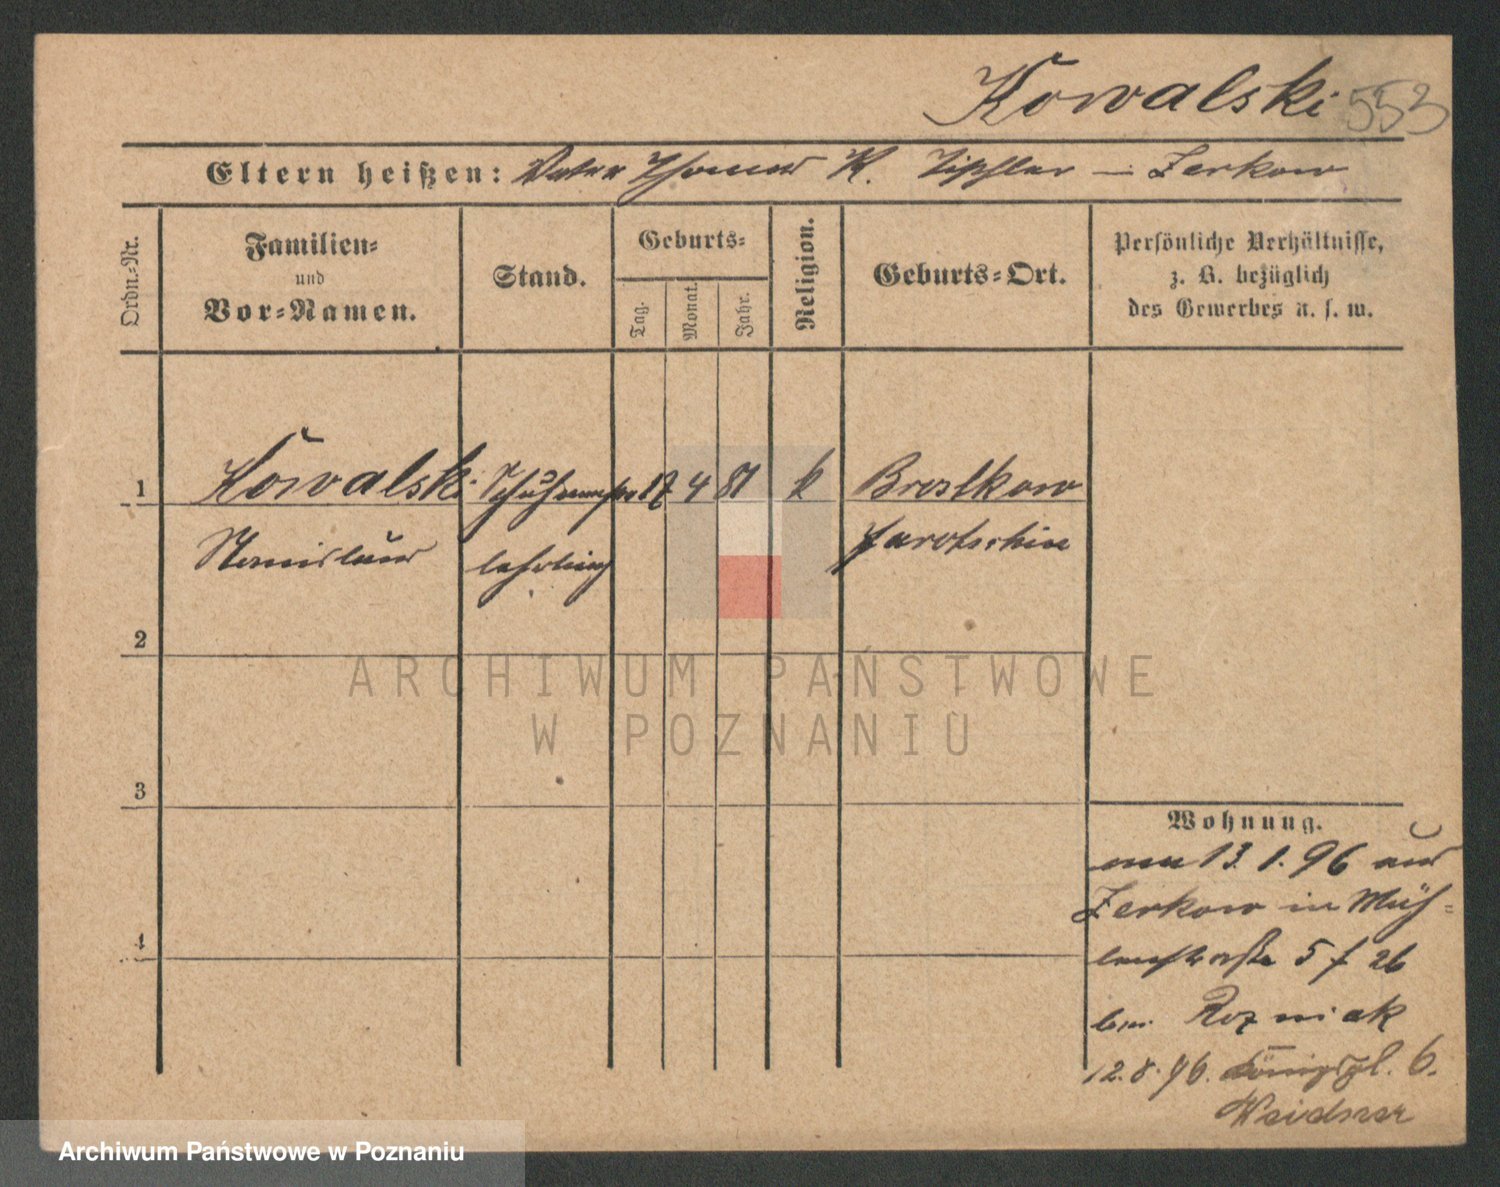 Kowalski 553
Eltern heißen: Vater Thomas K. Tischler – Zerkow
Ordn.-Nr.
Familien-
und
Vor-Namen.
Stand.
Geburts-
Tag.
Monat.
Jahr.
Religion.
Geburts-Ort.
Persönliche Verhältnisse,
z. B. bezüglich
des Gewerbes u. s. w.
1 Kowalski Schuhmacher 17 4 81 k Brostkow
Stanislaus lehrling Jarotschin
2
3
4
Wohnung.
13.1.96 aus
Zerkow in Müh-
lenstraße 5 / 26
bei Rozniak
12.8.96. Königspl. 6.
Weidner
ARCHIWUM PAŃSTWOWE
W POZNANIU
Archiwum Państwowe w Poznaniu